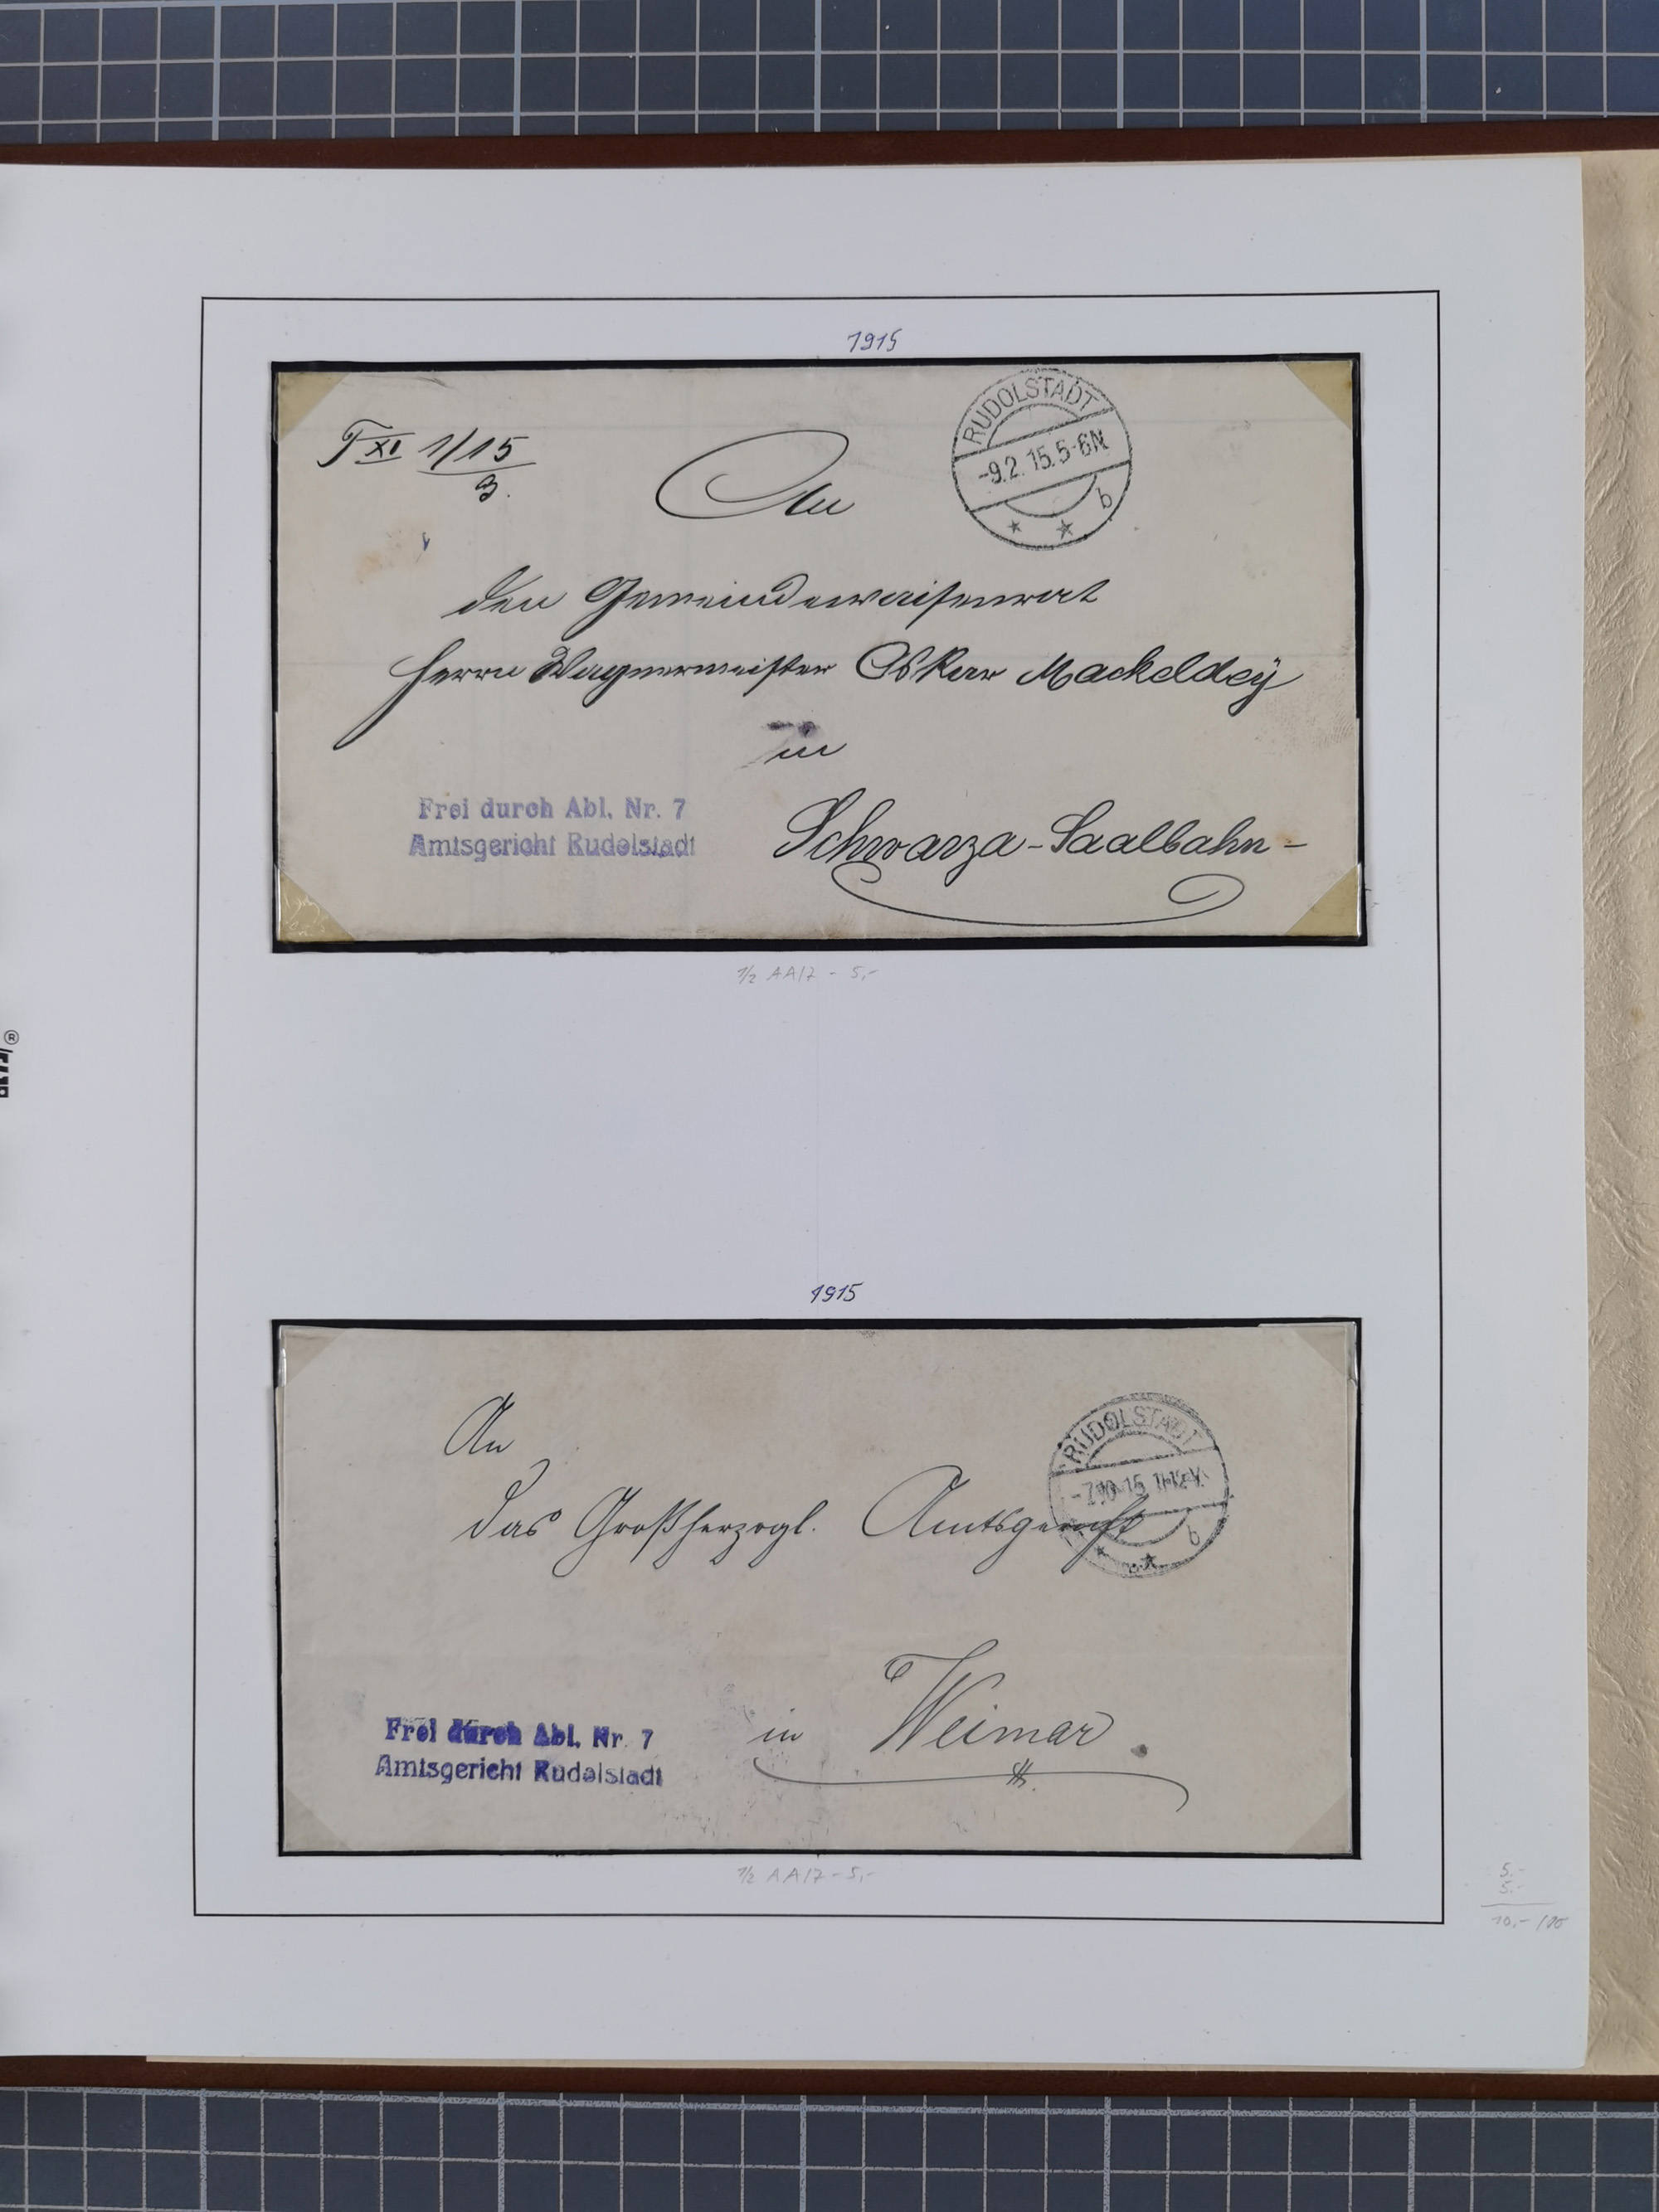 1915
RUDOLSTADT
-9.2.15.5-6N
* * b
T XI 1/15
3.
An
den Gemeindewaisenrat
Herrn Wagnermeister Oskar Mackeldey
in
Schwarza-Saalbahn-
Frei durch Abl. Nr. 7
Amtsgericht Rudolstadt
1/2 AA/7 - 5,-
1915
RUDOLSTADT
15 11-12V.
* * b
An
das Großherzogl. Amtsgericht
in Weimar.
Frei durch Abl. Nr. 7
Amtsgericht Rudolstadt
1/2 AA/7 - 5,-
5.-
5.-
10.-